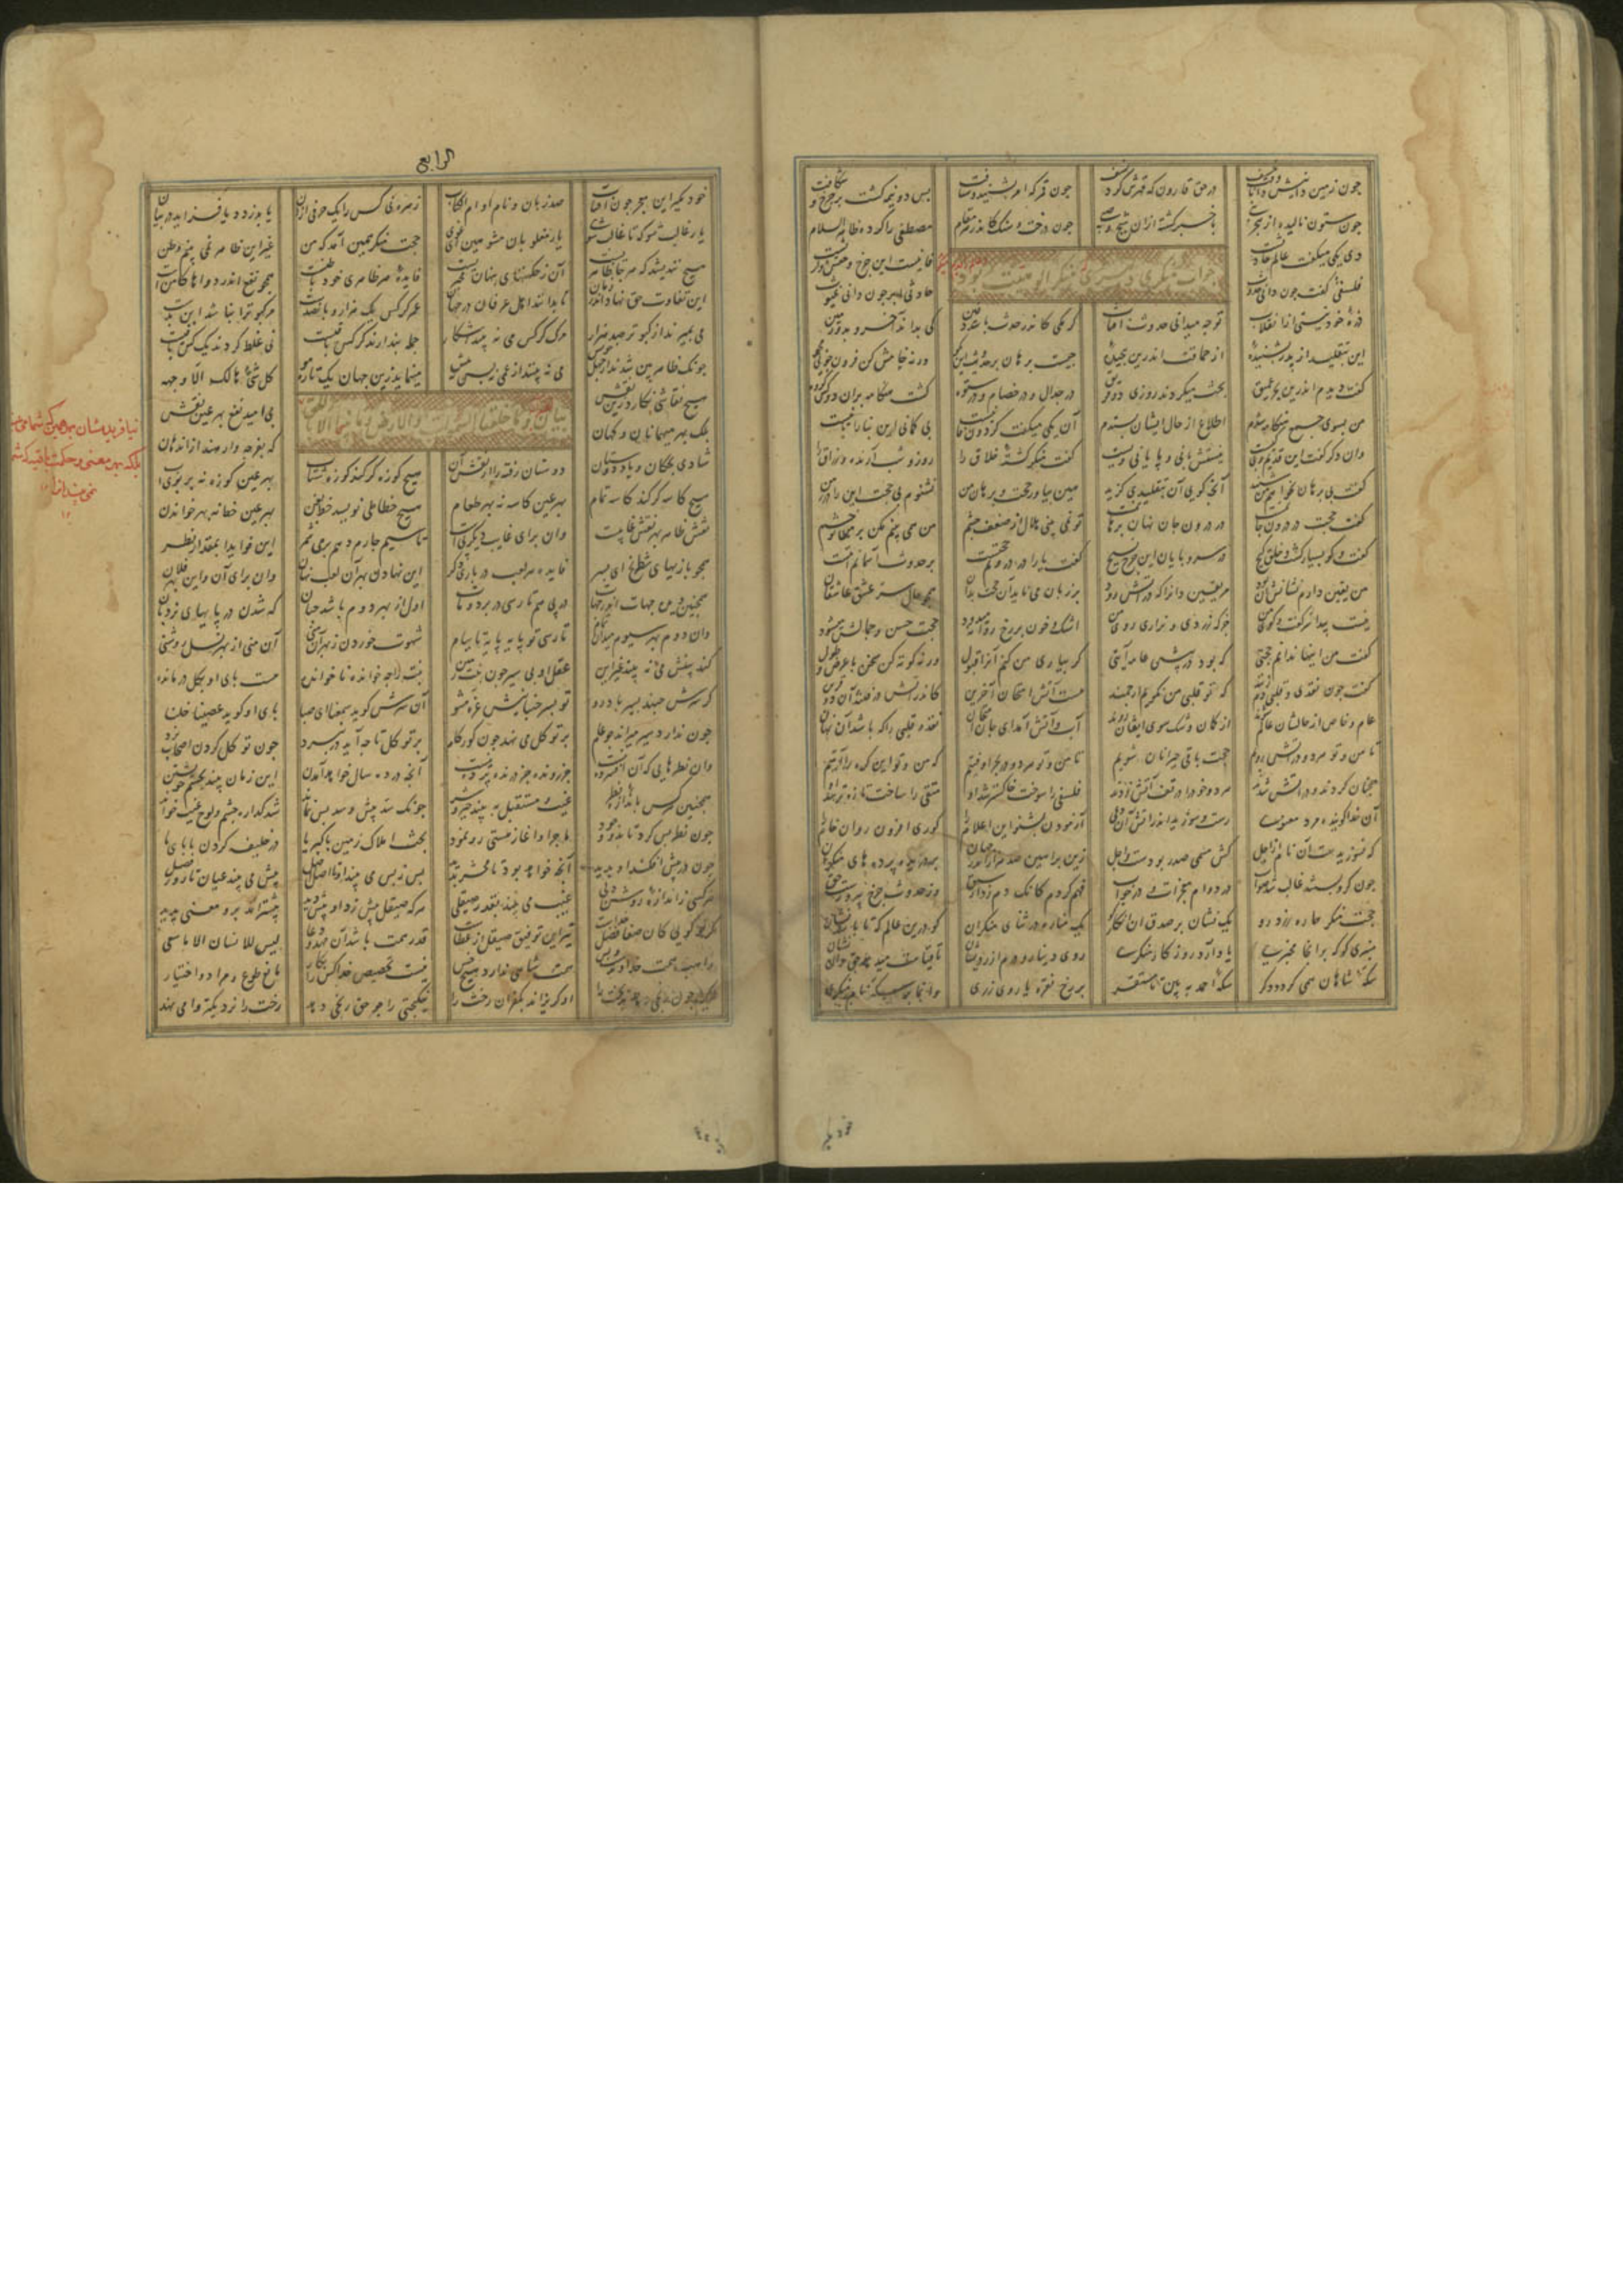 چون زمین دانش در حق قارون که قهرش کرد و نسف چون قمر که امر بشنید و شتافت پس دو نیمه گشت بر چرخ و شکافت
چون ستون نالید از هجر نبی چون درخت و سنگ کاندر هر مقام مصطفی را کرده ظاهر السلام
جواب
دی یکی میگفت عالم حادثست فانیست این چرخ و حقش وارثست
فلسفی گفت چون دانی حدوث حادثی ابر چون داند غیوث
ذره خود نیستی از انقلاب تو چه میدانی حدوث آفتاب کرمکی کاندر حدث باشد دفین کی بداند آخر و بدو زمین
این بتقلید از پدر بشنیده از حماقت اندرین پیچیده چیست برهان بر حدوث این بگو ورنه خامش کن فزون گویی مجو
گفت دیدم اندرین بحر عمیق بحث میکردند روزی دو فریق در جدال و در خصام و در ستوه گشت هنگامه بران دو کس گروه
من بسوی جمع هنگامه شدم اطلاع از حال ایشان بستدم آن یکی میگفت گردون فانیست بی گمانی این بنا را بانیست
وان دگر گفت این قدیم و بی کیست نیستش بانی و یا بانی ویست گفت منکر گشته خلاق را روز و شب آرنده و رزاق را
گفت بی برهان نخواهم من شنید آنچه گولی آن بتقلیدی گزید هین بیاور حجت و برهان که من نشنوم بی حجت این را در زمن
گفت حجت در درون جانمست در درون جان نهان برهانمست تو نمی بینی هلال از ضعف چشم من همی بینم مکن بر من تو خشم
گفت و گو بسیار گشت و خلق گیج در سر و پایان این چرخ بسیج گفت یارا در درونم حجتیست بر حدوث آسمانم آیتیست
من یقین دارم نشانش آن بود مر یقین دانرا که در آتش رود بر زبان می ناید آن حجت بدان همچو حال سر عشق عاشقان
نیست پیدا سر گفت و گوی من جز که زردی و نزاری روی من اشک و خون بر رخ روانه میدود حجت حسن و جمالش میشود
گفت من اینها ندانم حجتی که بود در پیش عامه آیتی گر بیاری من کنم آنرا قبول ورنه کوته کن سخن با عرض و طول
گفت چون نقدی و قلبی دم زنند که تو قلبی من نکویم ارجمند هست آتش امتحان آخرین کاندر آتش در فتند آن دو قرین
عام و خاص از حالشان عالم شوند از گمان و شک سوی ایقان روند آب و آتش آمد ای جان امتحان نقد و قلبی را که باشد آن نهان
تا من و تو هر دو در آتش رویم حجت باقی حیرانان شویم تا من و تو هر دو در بحر اوفتیم که من و تو این کره را آیتیم
همچنان کردند و در آتش شدند هر دو خود را در تف آتش زدند فلسفی را سوخت خاکستر شد او متقی را ساخت تازه تر شد او
آن خدا گوینده مرد مدعی رست و سوزید اندر آتش آن دعی بشنو این اعلام را کوری افزون روان خام را
که نسوزیدست آن نام از اجل کش مسمی صدر بودست و اجل بر دریده پرده های منکران
چون گرو بستند غالب شد صواب در دوام معجزات و در جواب فهم کردم کانک دم زد از سبق وز حدوث چرخ پیروزست حق
حجت منکر هماره زرد رو یک نشان بر صدق آن انکار کو یک مناره در ثنای منکران کو درین عالم که تا باشد نشان
منبری کو که بر آنجا مخبری یاد آرد روزگار منکری روی دینار و درم از
سکه شاهان همی گردد دگر سکه احمد ببین تا مستقر بر رخ نقره یا روی زری
الرابع
خود مگیر این معجز چون آفتاب صد زبان و نام او ام الکتاب زهره نی کس را یک حرفی از آن یا بدزدد یا فزاید در بیان
یار غالب شو که تا غالب شوی یار مغلوبان مشو هین ای غوی حجت منکر همین آمد که من غیر این ظاهر نمی بینم وطن
هیچ نندیشد که هر جا ظاهریست آن ز حکمتهای پنهان مخبریست فایده هر ظاهری خود باطنست همچو نفع اندر دواها کامنست
این تفاوت حق نهاد اندر زمان تا بدانند اهل عرفان در جهان عمر کرکس یک هزار و پانصدست هر کبوتر را بنا شد این بدست
می بمیرند از کبوتر صد هزار مرگ کرکس می نه بیند آشکار جمله پندارند کرکس باقیست نی غلط کردند یک کس باقیست
چونک ظاهر بین شدند از جهل خویش می نه بینند از عمی نی پس نه پیش مینماید زین جهان یک تاره مو کل شیء هالک الا وجهه
بیان و ما خلقنا السموات والارض و ما بینهما الا بالحق
هیچ نقاشی نگارد زین نقش بی امید نفع بهر عین نقش
بلک بهر میهمانان و کهان که بفرجه وارهند از اندهان
شادی بچگان و یاد دوستان دوستان رفته را از نقش آن هیچ کوزه گر کند کوزه شتاب بهر عین کوزه نه بر بوی آب
هیچ کاسه گر کند کاسه تمام بهر عین کاسه نه بهر طعام هیچ خطاطی نویسد خط بفن بهر عین خط نه بهر خواندن
نقش ظاهر بهر نقش غایبست وان برای غایب دیگر ببست تا سیم چارم دهم بر می شمر این فواید را بمقدار نظر
همچو بازیهای شطرنج ای پسر فایده هر لعب در بازی نگر این نهادن بهر آن لعب نهان وان برای آن و این بهر فلان
همچنین دیدن جهات اندر جهات در پی هم تا رسی در برد و مات اول از بهر دوم باشد چنان که شدن در پایهای نردبان
وان دوم بهر سیوم میدان تمام تا رسی تو پایه پایه تا ببام شهوت خوردن ز بهر آن منی آن منی از بهر نسل و روشنی
کند بینش می نه بیند غیر این عقل او بی سیر چون نبت زمین نبت را چه خوانده نا خوانده هست پای او بگل در مانده
گر سرش جنبد بسیر باد رو تو بسر جنبانیش غره مشو آن سرش گوید سمعنا ای صبا پای او گوید عصینا خلنا
چون ندارد سیر میراند چو عام بر توکل می نهد چون کور گام بر توکل تا چه آید در نبرد چون توکل کردن اصحاب نرد
وان نظرهایی که آن افسرده نیست جز رونده جز درنده پرده نیست آنچه در ده سال خواهد آمدن این زمان بیند بچشم خویشتن
همچنین هر کس باندازه نظر غیب و مستقبل به بیند خیر و شر چونک سد پیش و سد پس نماند شد گذاره چشم و لوح غیب خواند
چون نظر پس کرد تا بدو وجود ماجرا و آغاز هستی رو نمود بحث املاک زمین با کبریا در خلیفه کردن بابای ما
چون در پیش افکند او بدید آنچه خواهد بود تا محشر پدید پس ز پس می بیند او تا اصل اصل پیش می بیند عیان تا روز فصل
هر کسی ز اندازه روشن دلی غیب می بیند بقدر صیقلی هر که صیقل بیش زد او بیش دید بیشتر آمد برو معنی پدید
گر تو گویی کان صفا فضل خداست نیز این توفیق صیقل زان عطاست قدر همت باشد آن جهد و دعا لیس للانسان الا ما سعی
واهب همت خداوندست و بس همت شاهی ندارد هیچ خس نیست تخصیص خدا کس را بکار مانع طوع و مراد و اختیار
او گریزاند بکفران رخت را نیکبختی را چو حق رنجی دهد رخت را نزدیکتر وا می نهد